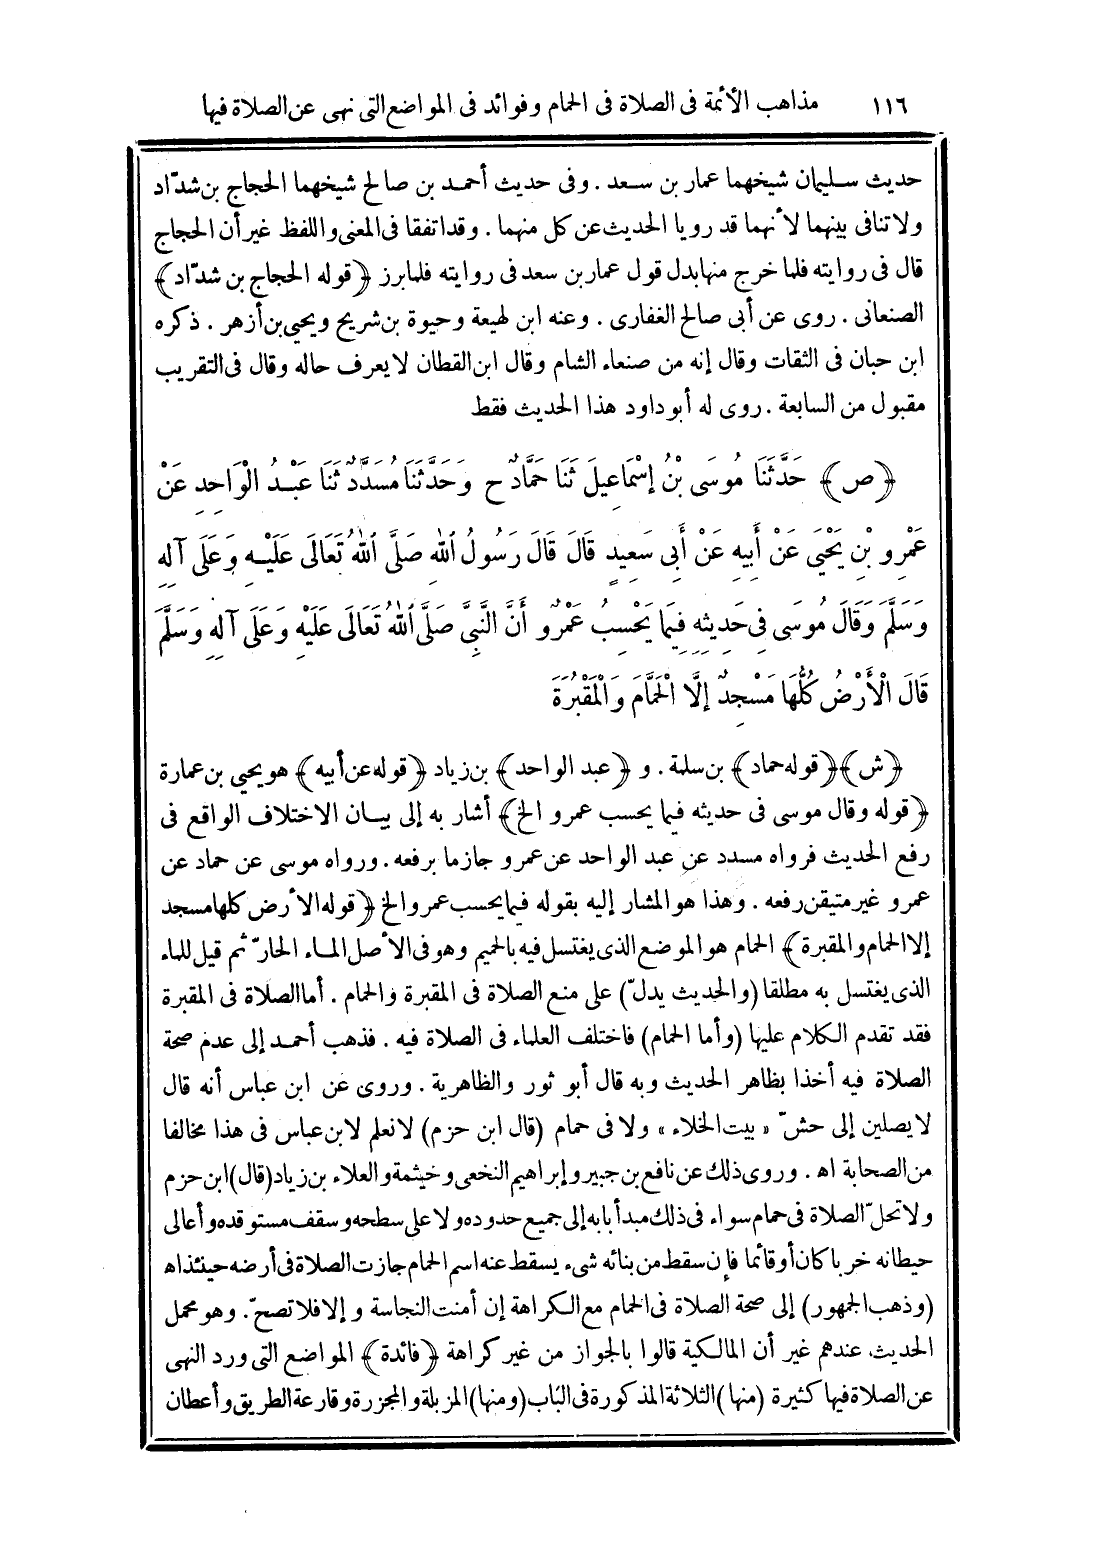 ١١٦ مذاهب الأئمة فى الصلاة فى الحمام وفوائد فى المواضع التى نهى عن الصلاة فيها
حديث سليمان شيخهما عمار بن سعد . وفى حديث أحمد بن صالح شيخهما الحجاج بن شدّاد
ولا تنافى بينهما لأنهما قد رويا الحديث عن كل منهما . وقد اتفقا فى المعنى واللفظ غير أن الحجاج
قال فى روايته فلما خرج منها بدل قول عمار بن سعد فى روايته فلما برز ﴿قوله الحجاج بن شدّاد﴾
الصنعانى . روى عن أبى صالح الغفارى . وعنه ابن لهيعة وحيوة بن شريح ويحيى بن أزهر . ذكره
ابن حبان فى الثقات وقال إنه من صنعاء الشام وقال ابن القطان لا يعرف حاله وقال فى التقريب
مقبول من السابعة . روى له أبو داود هذا الحديث فقط
﴿ص﴾ حَدَّثَنَا مُوسَى بْنُ إِسْمَاعِيلَ ثَنَا حَمَّادٌ ح وَحَدَّثَنَا مُسَدَّدٌ ثَنَا عَبْدُ الْوَاحِدِ عَنْ
عَمْرِو بْنِ يَحْيَى عَنْ أَبِيهِ عَنْ أَبِى سَعِيدٍ قَالَ قَالَ رَسُولُ اللهِ صَلَّى اللهُ تَعَالَى عَلَيْهِ وَعَلَى آلِهِ
وَسَلَّمَ وَقَالَ مُوسَى فِى حَدِيثِهِ فِيمَا يَحْسِبُ عَمْرٌو أَنَّ النَّبِىَّ صَلَّى اللهُ تَعَالَى عَلَيْهِ وَعَلَى آلِهِ وَسَلَّمَ
قَالَ الْأَرْضُ كُلُّهَا مَسْجِدٌ إِلَّا الْحَمَّامَ وَالْمَقْبُرَةَ
﴿ش﴾ ﴿قوله حماد﴾ بن سلمة . و ﴿عبد الواحد﴾ بن زياد ﴿قوله عن أبيه﴾ هو يحيى بن عمارة
﴿قوله وقال موسى فى حديثه فيما يحسب عمرو الخ﴾ أشار به إلى بيان الاختلاف الواقع فى
رفع الحديث فرواه مسدد عن عبد الواحد عن عمرو جازما برفعه . ورواه موسى عن حماد عن
عمرو غير متيقن رفعه . وهذا هو المشار إليه بقوله فيما يحسب عمرو الخ ﴿قوله الأرض كلها مسجد
إلا الحمام والمقبرة﴾ الحمام هو الموضع الذى يغتسل فيه بالحميم وهو فى الأصل الماء الحارّ ثم قيل للماء
الذى يغتسل به مطلقا (والحديث يدلّ) على منع الصلاة فى المقبرة والحمام . أما الصلاة فى المقبرة
فقد تقدم الكلام عليها (وأما الحمام) فاختلف العلماء فى الصلاة فيه . فذهب أحمد إلى عدم صحة
الصلاة فيه أخذا بظاهر الحديث وبه قال أبو ثور والظاهرية . وروى عن ابن عباس أنه قال
لا يصلين إلى حشّ « بيت الخلاء » ولا فى حمام (قال ابن حزم) لا نعلم لابن عباس فى هذا مخالفا
من الصحابة اه . وروى ذلك عن نافع بن جبير وإبراهيم النخعى وخيثمة والعلاء بن زياد (قال) ابن حزم
ولا تحلّ الصلاة فى حمام سواء فى ذلك مبدأ بابه إلى جميع حدوده ولا على سطحه وسقف مستوقده وأعالى
حيطانه خربا كان أو قائما فإن سقط من بنائه شىء يسقط عنه اسم الحمام جازت الصلاة فى أرضه حينئذ اه
(وذهب الجمهور) إلى صحة الصلاة فى الحمام مع الكراهة إن أمنت النجاسة وإلا فلا تصحّ . وهو محمل
الحديث عندهم غير أن المالكية قالوا بالجواز من غير كراهة ﴿فائدة﴾ المواضع التى ورد النهى
عن الصلاة فيها كثيرة (منها) الثلاثة المذكورة فى الباب (ومنها) المزبلة والمجزرة وقارعة الطريق وأعطان